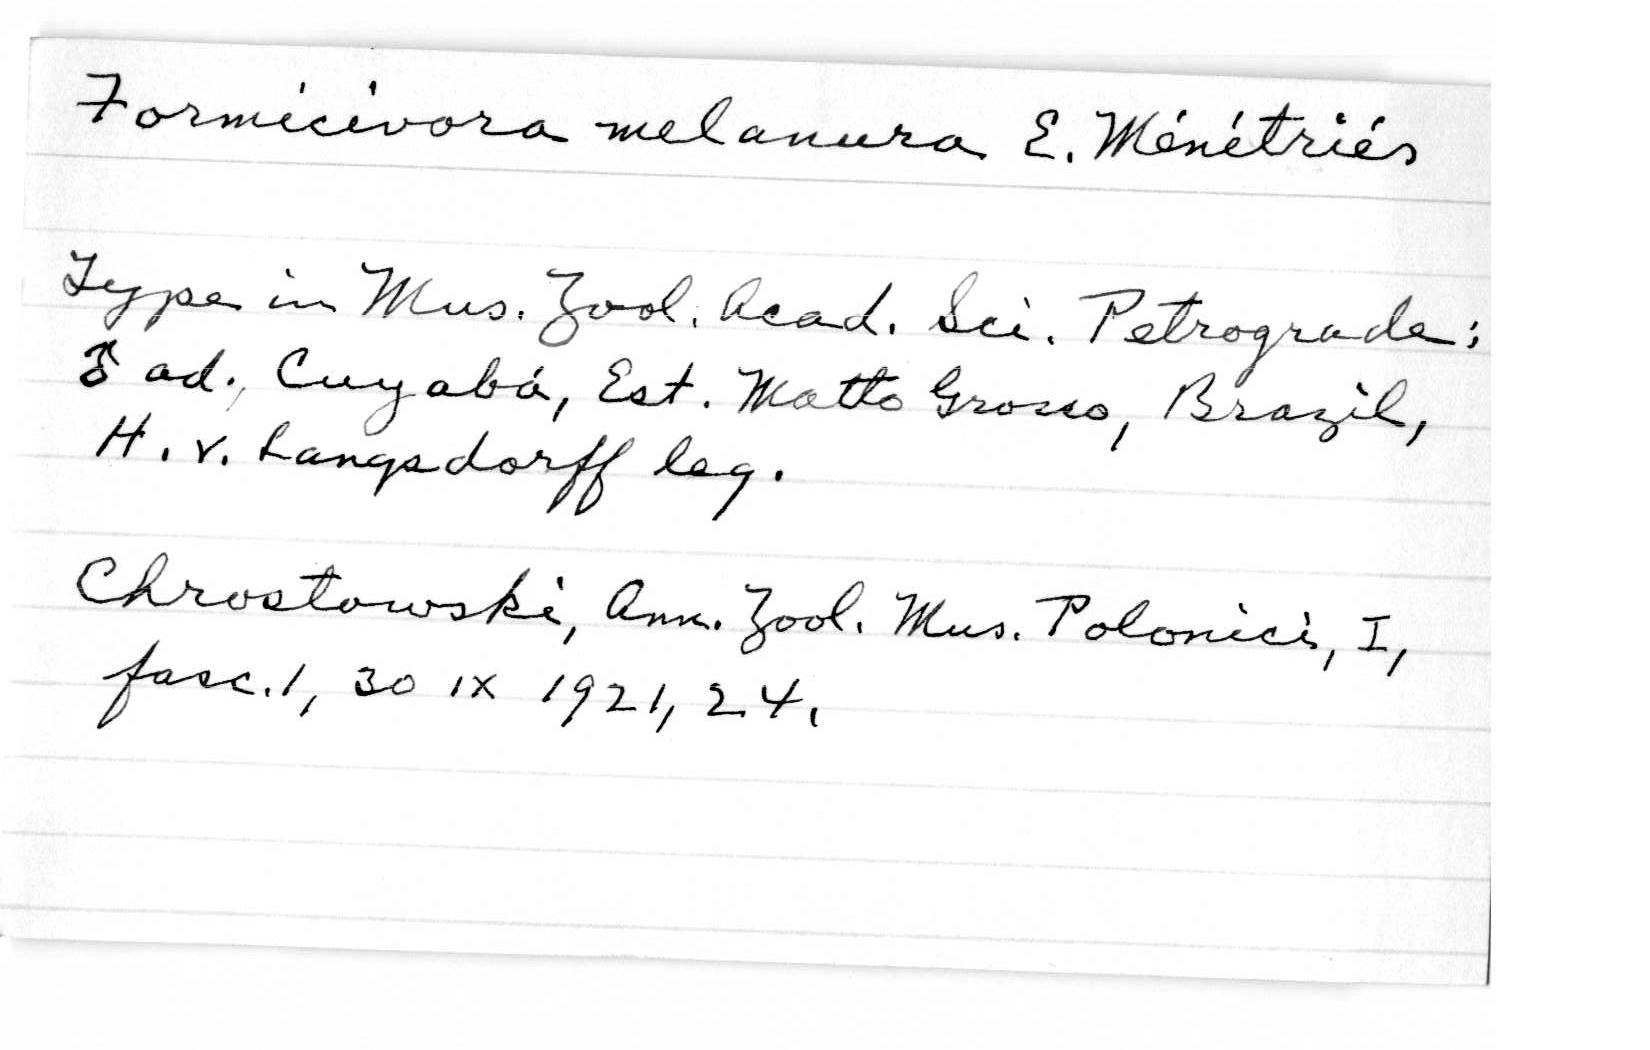 Formicivora melanura E. Ménétriés
Type in Mus. Zool. Acad. Sci. Petrograde:
♂ ad., Cuyabá, Est. Matto Grosso, Brazil,
H. v. Langsdorff leg.
Chrostowski, Ann. Zool. Mus. Polonici, I,
fasc. 1, 30 IX 1921, 24.